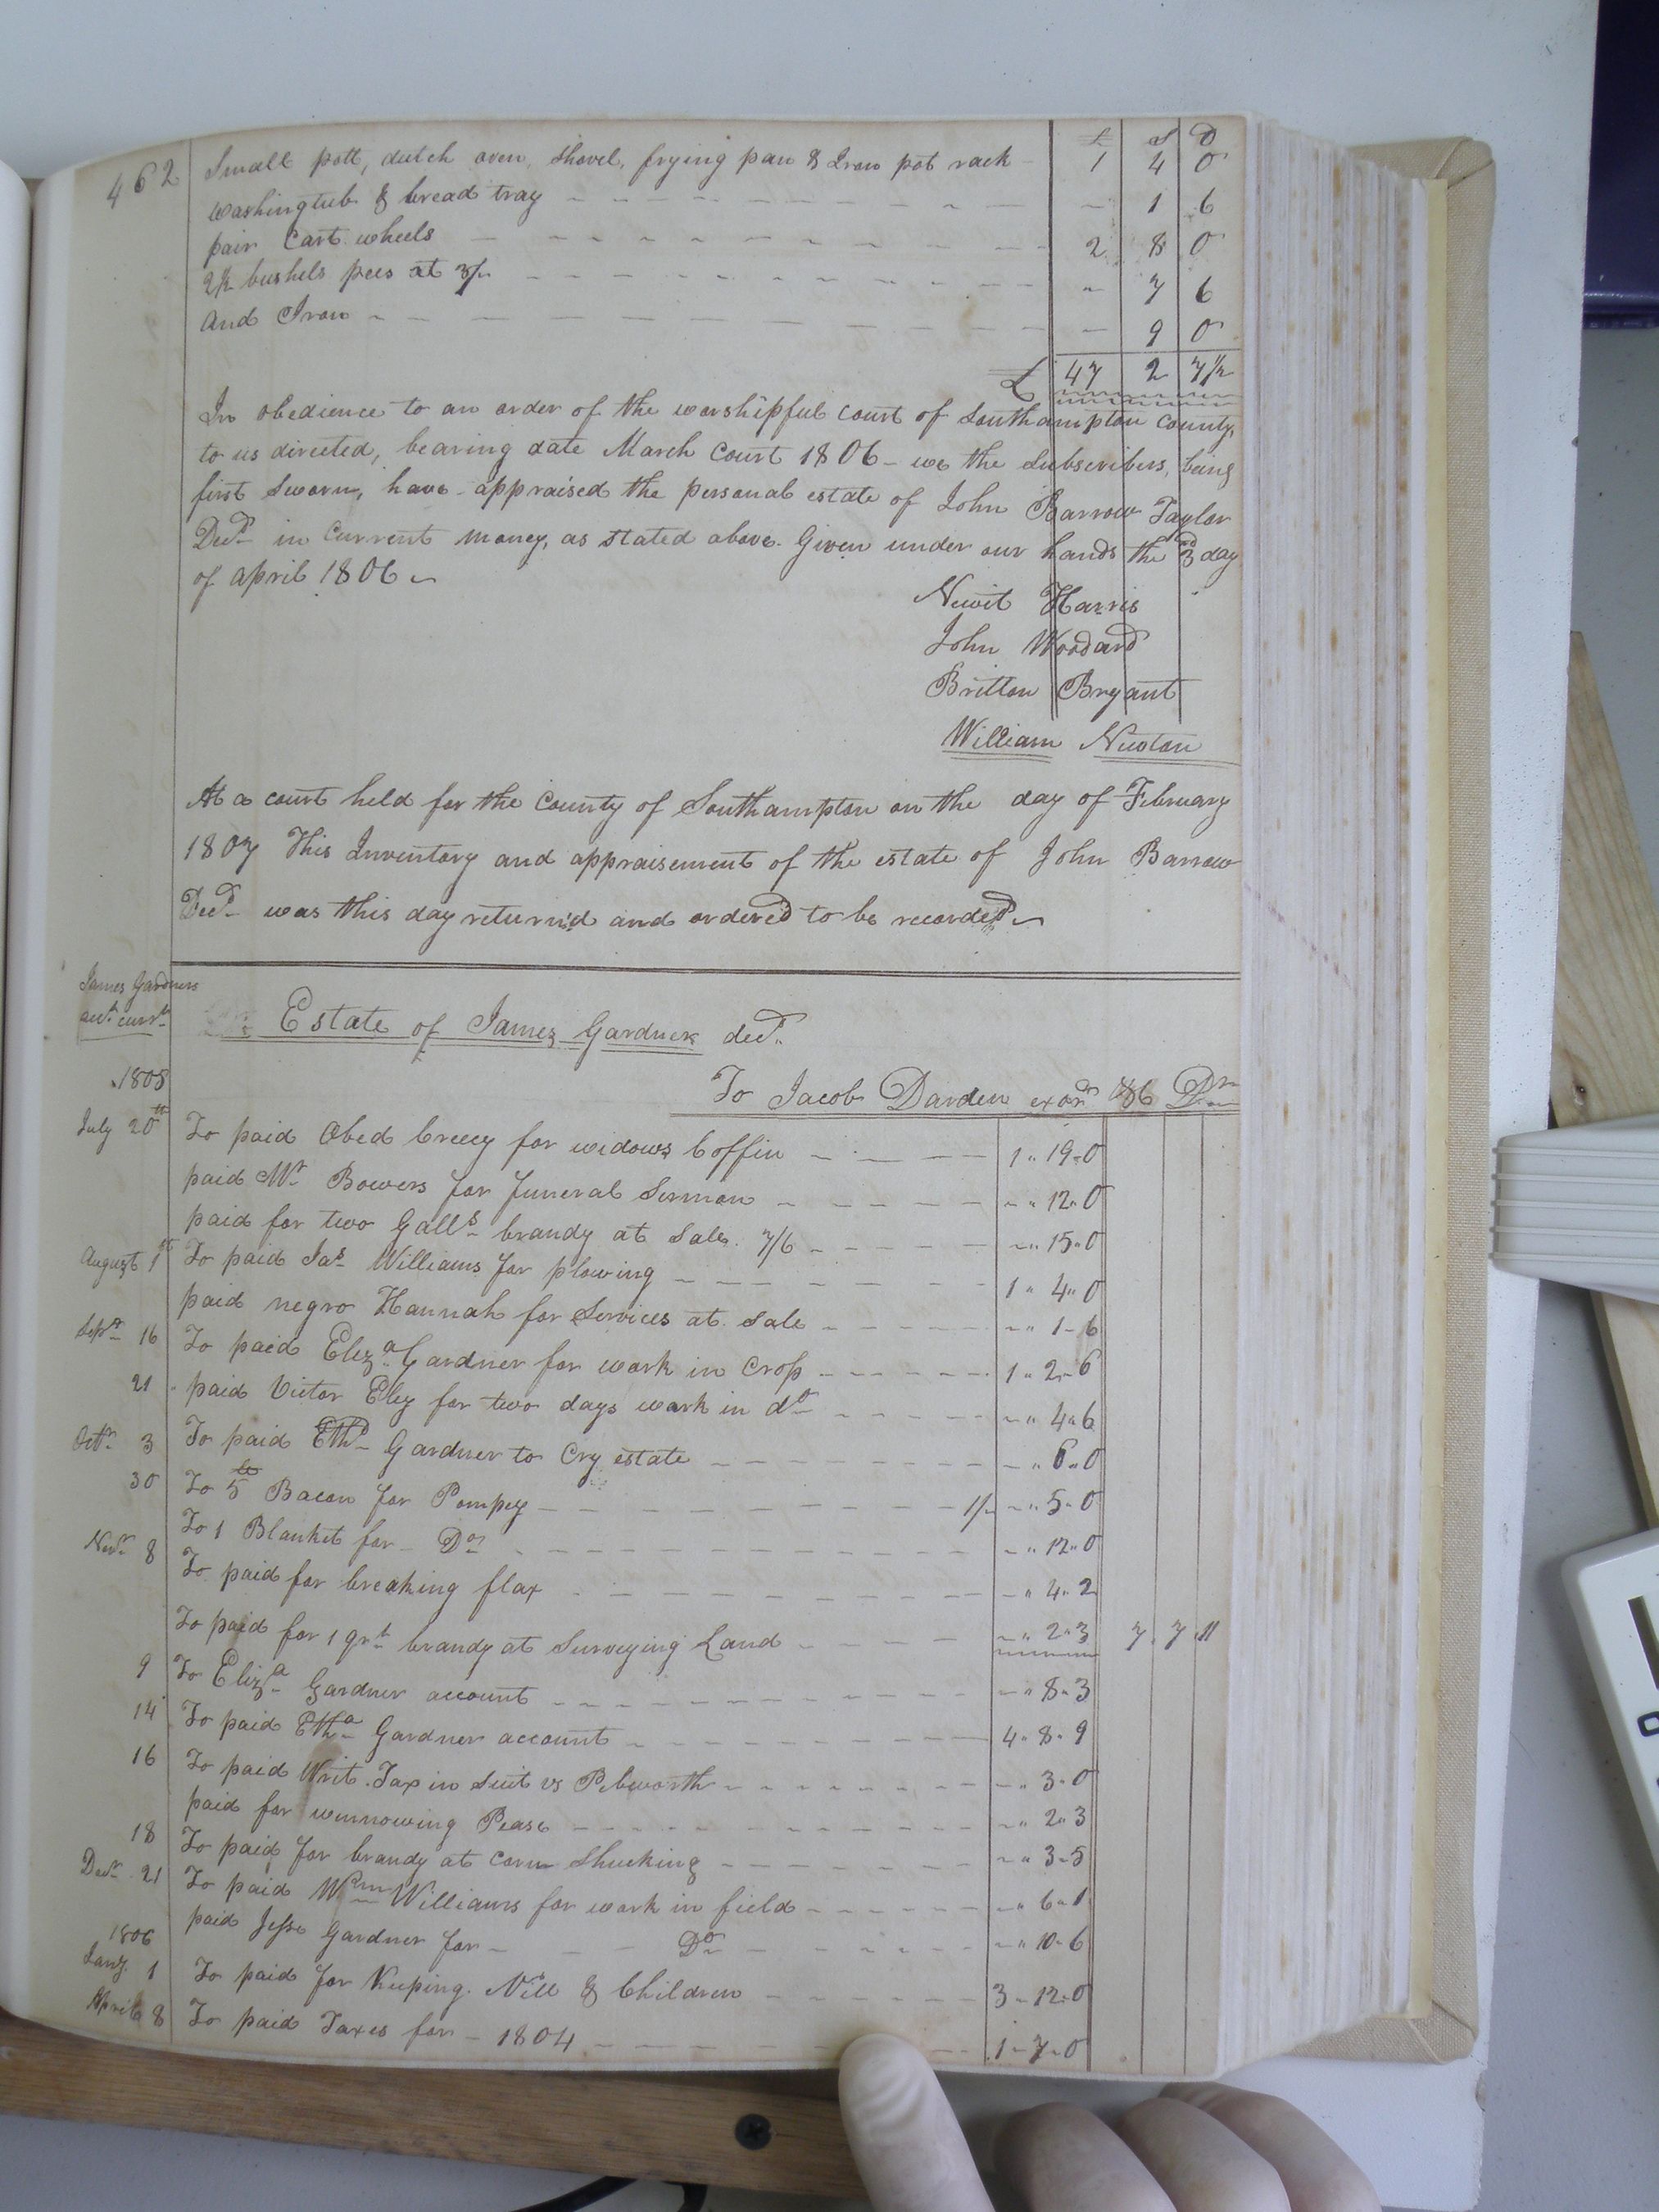 462
£ S D
Small pott, dutch oven, Shovel, frying pan & Iron pot rack 1 4 0
Washingtub & bread tray 1 6
pair Cart wheels 2 8 0
2½ bushels pees at 3/- 7 6
And Iron 9 0
£ 47 2 7½
In obedience to an order of the worshipful court of Southampton County,
to us directed, bearing date March Court 1806 - we the Subscribers, being
first Sworn, have appraised the personal estate of John Barrow Taylor
Decd in Current money, as stated above. Given under our hands the 3d day
of april 1806
Newit Harris
John Woodard
Britton Bryant
William Newton
At a court held for the County of Southampton on the day of February
1807 This Inventory and appraisement of the estate of John Barrow
Decd was this day return'd and order'd to be recorded
James Gardners
acct currt
Estate of James Gardner decd
1805
To Jacob Darden exor Dr
July 20th To paid Obed Creecy for widows Coffin 1 " 19 " 0
paid Mr Bowers for funeral Sermon " 12 " 0
paid for two Galls brandy at Sale 7/6 " 15 " 0
August 1st To paid Jas Williams for plowing 1 " 4 " 0
paid negro Hannah for Services at Sale " 1 - 6
Sepr 16 To paid Eliza Gardner for work in Crop 1 " 2 - 6
21 paid Victor Eley for two days work in do " 4 " 6
Octr 3 To paid Ethd Gardner to Cry estate " 6 " 0
30 To 5 lb Bacon for Pompey 1/- " 5 - 0
To 1 Blanket for Do " 12 " 0
Novr 8 To paid for breaking flax " 4 " 2
To paid for 1 qrt brandy at Surveying Land " 2 " 3 7 . 7 . 11
9 To Eliza Gardner account " 8 " 3
14 To paid Etha Gardner account 4 " 8 " 9
16 To paid Writ Tax in Suit vs Pebworth " 3 " 0
paid for winnowing Pease " 2 " 3
18 To paid for brandy at Corn Shucking " 3 - 5
Decr 21 To paid Wm Williams for work in field " 6 " 1
paid Jesse Gardner for Do " 10 - 6
1806
Jany 1 To paid for Keeping Nill & Children 3 - 12 " 0
April 8 To paid Taxes for - 1804 1 - 7 - 0